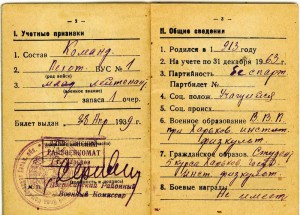 — 2 —
I. Учетные признаки
1. Состав Команд.
2. Пехот. ВУС № 1
(род войск)
3. млад. лейтенант
(военное звание)
запаса 1 очер.
Билет выдан 1939 г.
РАЙВОЕНКОМАТ
М.П.
Районный
Военный Комиссар
— 3 —
II. Общие сведения
1. Родился в 1913 году
2. На учете по 31 декабря 1963 г.
3. Партийность Беспарт.
Партбилет №
4. Соц. полож. Учащийся
5. Соц. происх.
6. Военное образование В.В.П.
при Харьков институт
7. Гражданское образов. Студент
5 курса Харьков
8. Боевые награды
Не имеет